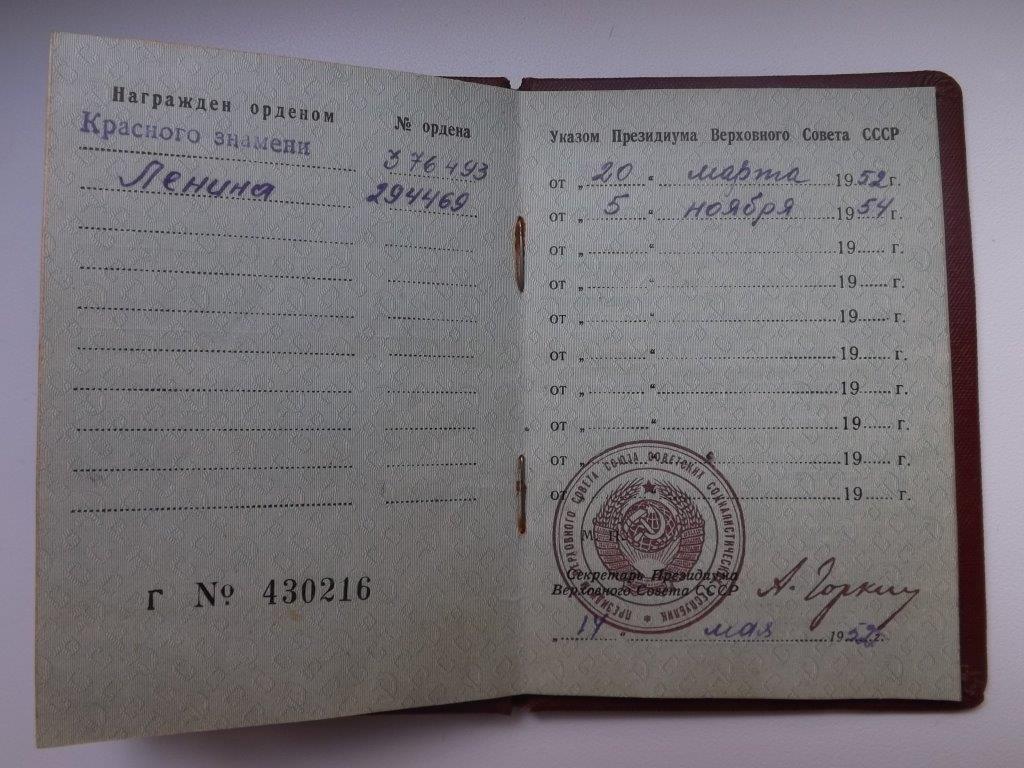 Награжден орденом № ордена
Красного знамени 376493
Ленина 294469
г № 430216
Указом Президиума Верховного Совета СССР
от „ 20 “ марта 1952 г.
от „ 5 “ ноября 1954 г.
от „ “ 19 г.
от „ “ 19 г.
от „ “ 19 г.
от „ “ 19 г.
от „ “ 19 г.
от „ “ 19 г.
от „ “ 19 г.
от „ “ 19 г.
М. П.
Секретарь Президиума
Верховного Совета СССР А. Горкин
„ 14 “ мая 1952 г.
ПРЕЗИДИУМ ВЕРХОВНОГО СОВЕТА СОЮЗА СОВЕТСКИХ СОЦИАЛИСТИЧЕСКИХ РЕСПУБЛИК